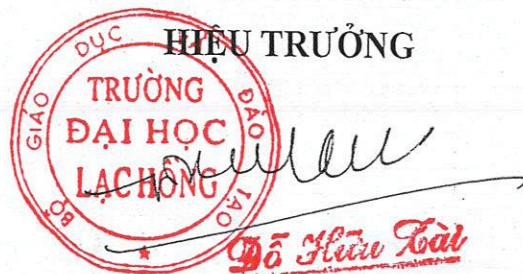 HIỆU TRƯỞNG
BỘ GIÁO DỤC ĐÀO TẠO
TRƯỜNG
ĐẠI HỌC
LẠC HỒNG
Đỗ Hữu Tài